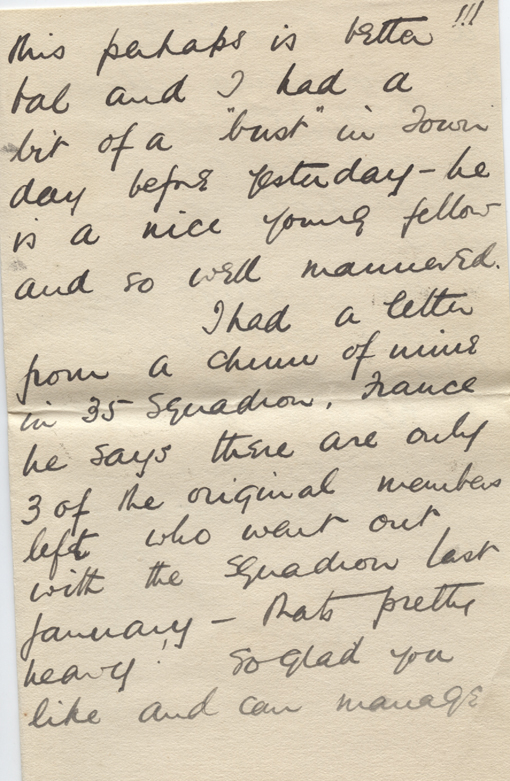 this perhaps is better !!!
Hal and I had a
bit of a "bust" in Town
day before yesterday - he
is a nice young fellow
and so well mannered.
I had a letter
from a chum of mine
in 35 Squadron, France
he says there are only
3 of the original members
left who went out
with the Squadron last
January - thats pretty
heavy! So glad you
like and can manage